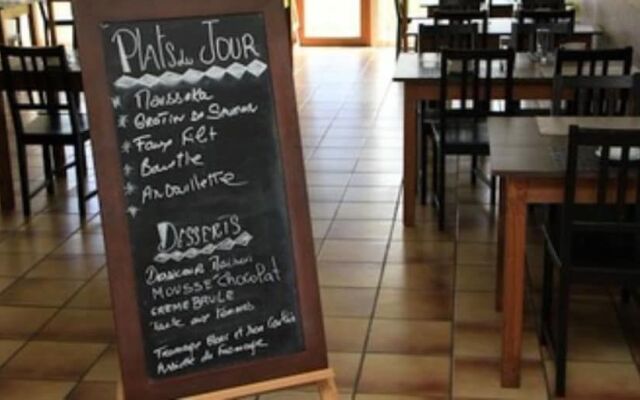 Plats du Jour
* Moussaka
* Gratin de
* Faux Filet
* Bavette
* Andouillette
*
DESSERTS
Maison
MOUSSE Chocolat
CREME BRULE
aux Pommes
Fromage Blanc et son Coulis
Assiette de Fromage